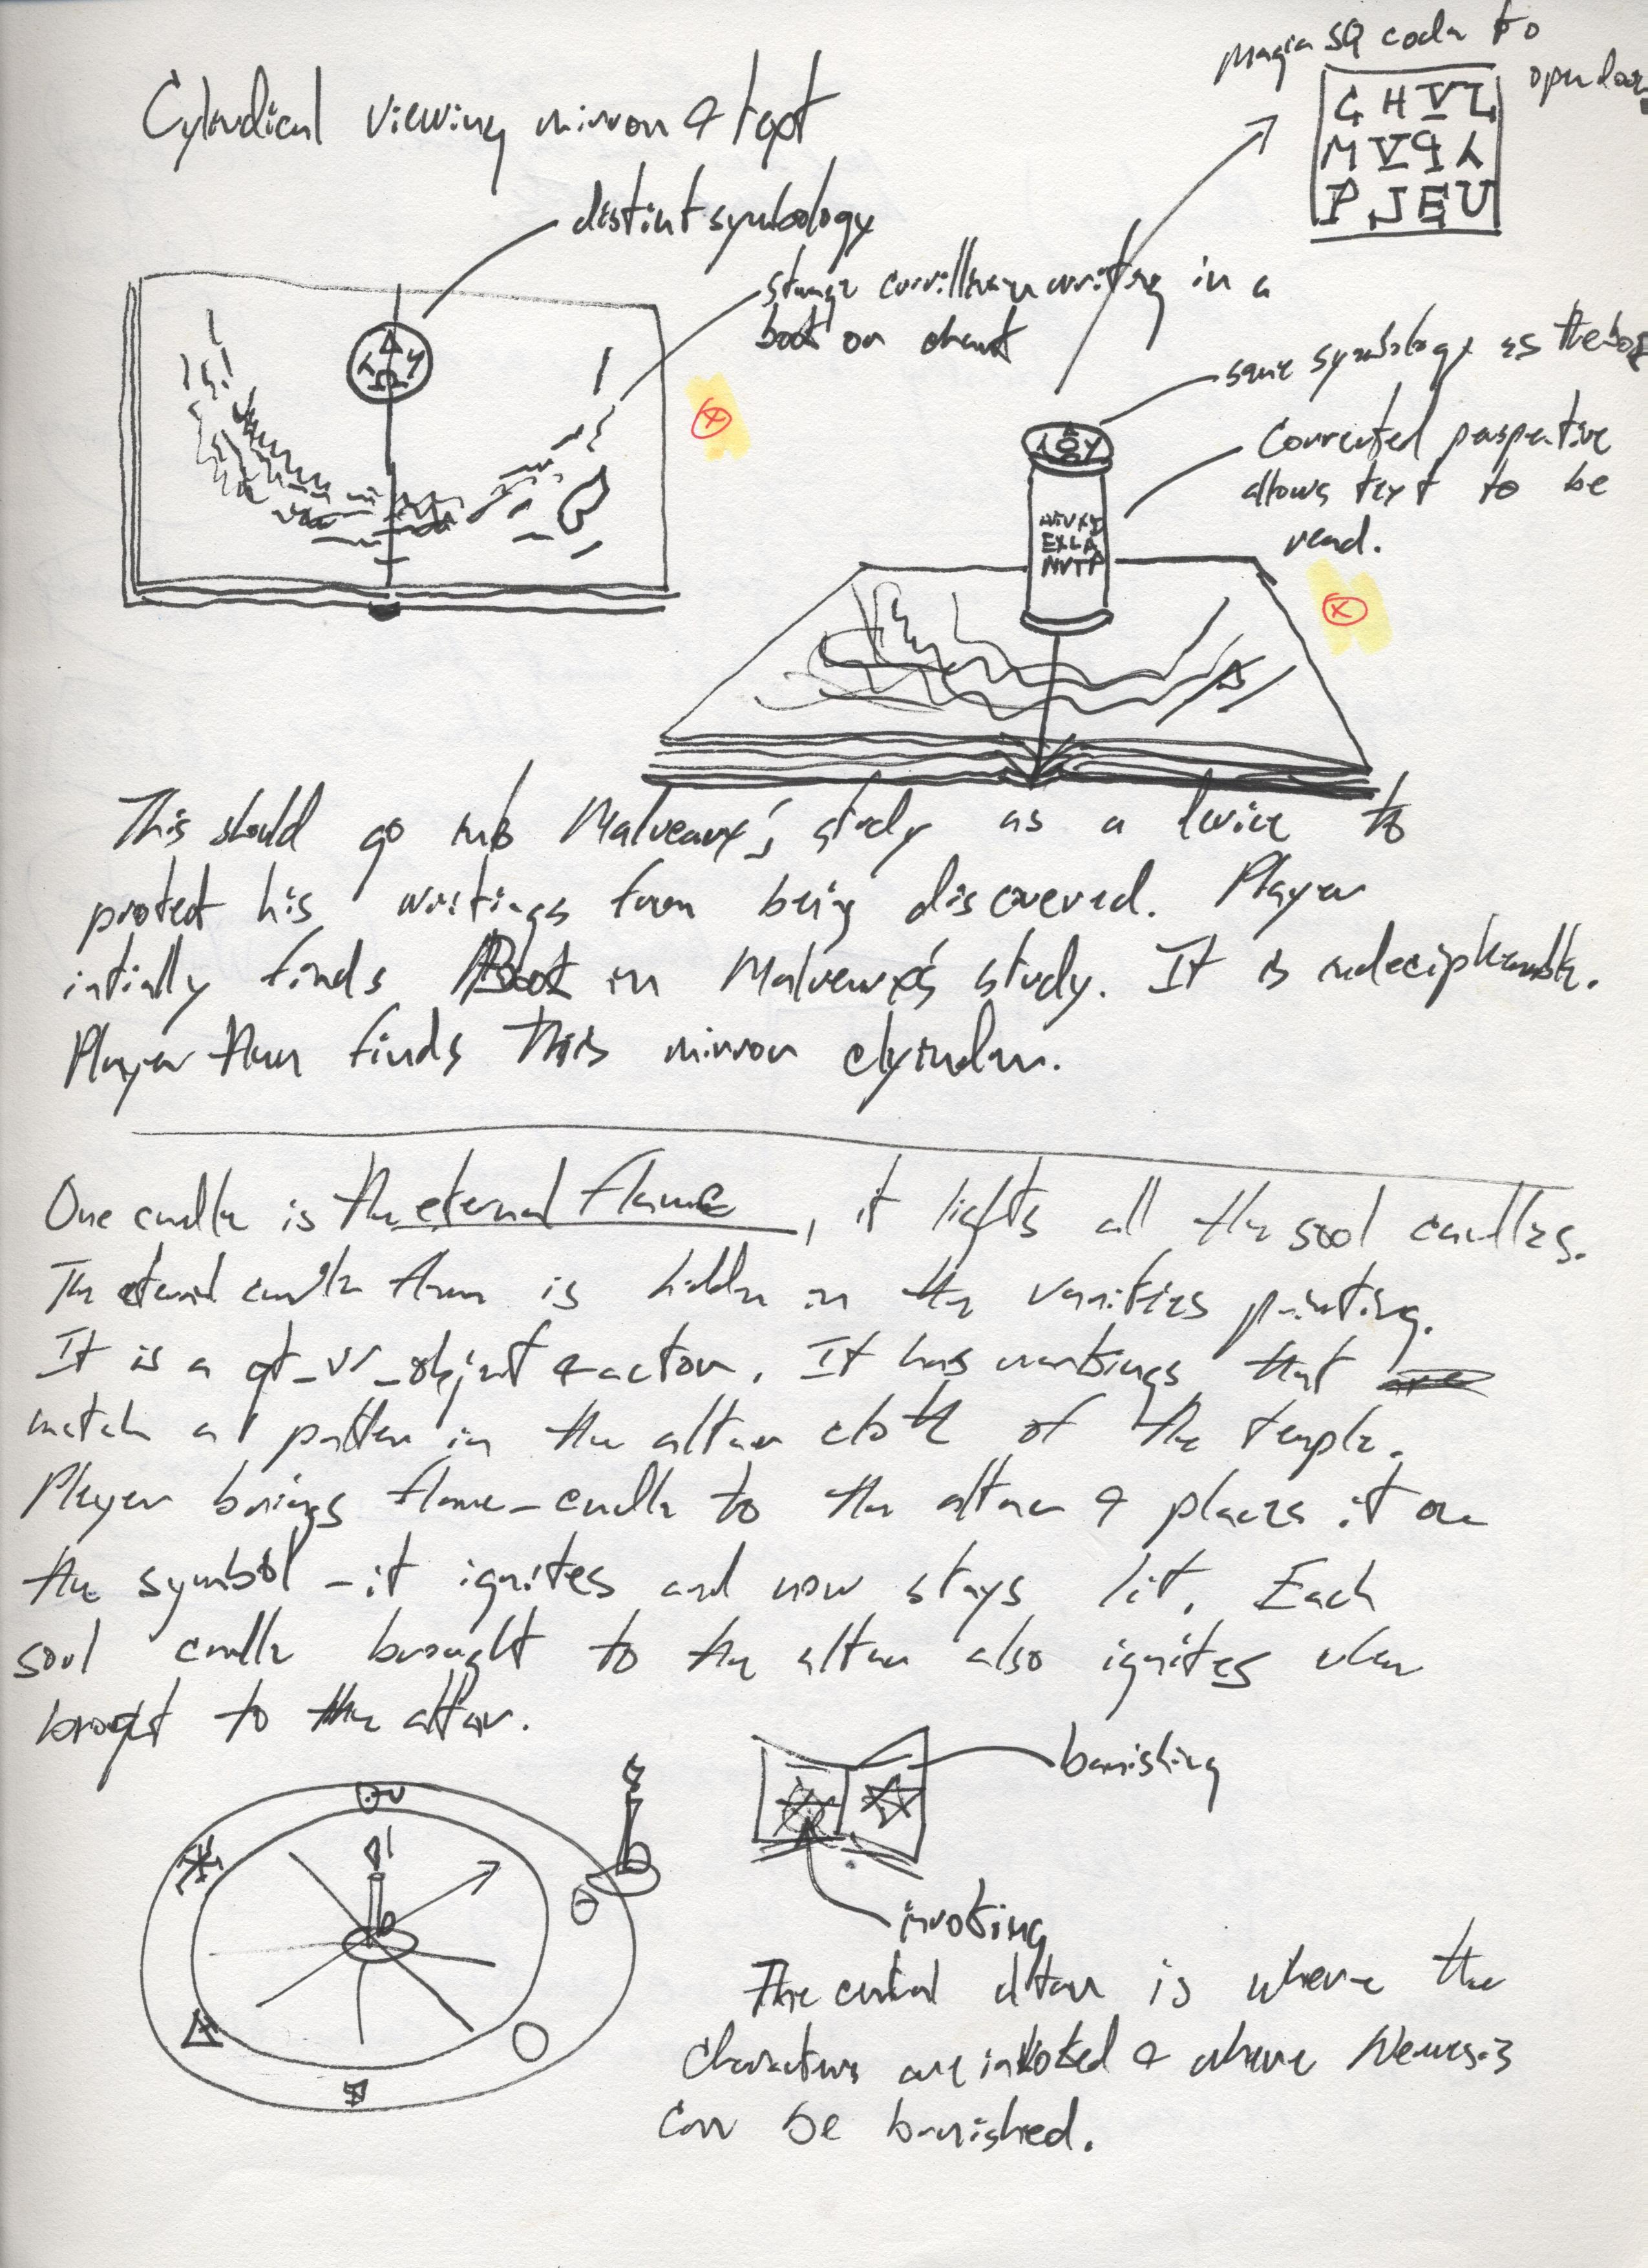 Magic SQ code to
open door
C H V L
M V 9 λ
P J E U
Cylndical viewing mirror & text
distint symbology
strange curvillinear writing in a
book or chart
same symbology as the book
Corrected perspective
allows text to be
read.
EXLA
MVTP
This should go into Malveaux's study as a device to
protect his writings from being discovered. Player
intially finds Book in Malveaux's study. It is indecipherable.
Player then finds this mirror clyinder.
One candle is the eternal flame, it lights all the soul candles.
The eternal candle flame is hidden in the vanities painting.
It is a qt_vr_object & actor. It has markings that
match a patter in the altar cloth of the temple.
Player brings flame-candle to the altar & places it on
the symbol - it ignites and now stays lit. Each
soul candle brought to the altar also ignites when
brought to the altar.
banishing
invoking
The central altar is where the
characters are invoked & where Nemesis
can be banished.